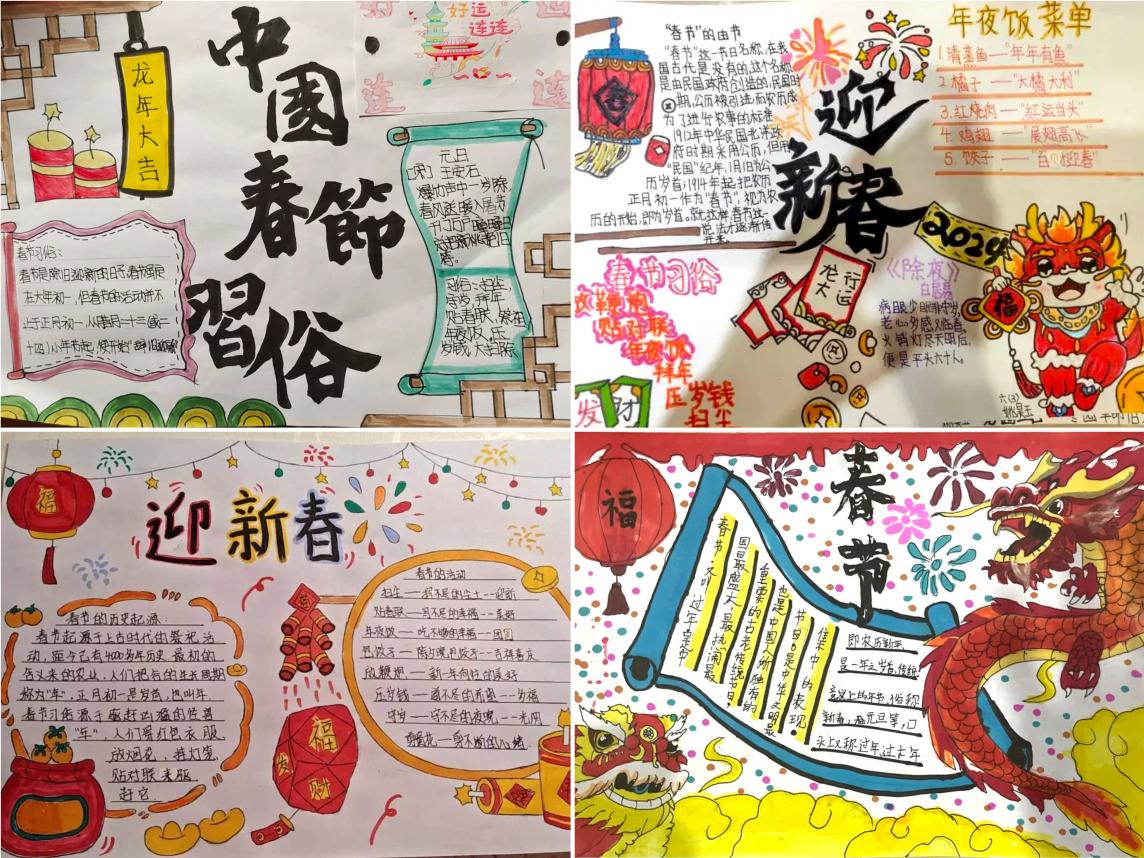 龙年大吉
中國
春節
習俗
好运
连连
好
运
连
连
元日
[宋] 王安石
爆竹声中一岁除,
春风送暖入屠苏
千门万户曈曈日
习俗:扫尘,
守岁,拜年
贴春联,祭祖
年夜饭,压
岁钱,大扫除
春节习俗:
春节是除旧迎新的日子.春节虽定
在大年初一,但春节的活动并不
止于正月初一.从腊月二十三(或二
十四)小年节起,便开始
“春节”的由节
“春节”这一节日名称,在我
国古代是没有的,这个名称
是由民国政府创造的,民国时
期,公历被引进,而农历成
为了进行农事的标准
1912年中华民国北洋政
府时期采用公历,但用
“民国”纪年,1月1日为公
历岁首;1914年起把农历
正月初一作为“春节”,视为农
历的开始,即为岁首。就这样,春节这一
说法才逐渐传
开来。
春
迎
新春
年夜饭菜单
1.清蒸鱼——“年年有鱼”
2.橘子——“大橘大利”
3.红烧肉——“红运当头”
4.鸡翅——“展翅高飞”
5.饺子——
2024
春节习俗
放鞭炮
贴对联
年夜饭
拜年
压岁钱
扫尘
发财
龙行
大运
《除夜》
白居易
病眼少眠非守岁,
老心多感又临春。
火销灯尽天明后,
便是平头六十人。
福
六(3)
福
迎新春
春节的历史起源
春节起源于上古时代的祭祀活
动,距今已有4000多年历史.最初的
含义来的农业,人们把谷的生长周期
称为“年”,正月初一是岁首,也叫年.
春节习俗源于驱赶凶猛的怪兽
“年”人们穿红色衣服
放烟花,挂灯笼,
贴对联来驱
赶它.
春节的活动
扫尘——扫不尽的尘土--迎新
贴春联——贴不尽的幸福--美好
年夜饭——吃不够的幸福--团圆
包饺子——除夕晚包饺子--吉祥喜庆
放鞭炮——新一年的好的美好
压岁钱——道不尽的希望--岁福
守岁——守不尽的夜晚--光阴
剪窗花——剪不断的心绪
福
发
财
福
春节
春节又叫过年是中
国日最盛大最热闹最
重要的古老传统节日
也是中国人所独有的
节日.是中华文明最
集中的表现
即农历新年,
是一年之岁首,传统
意义上的年节.俗称
新春,年,元旦等,口
头上又称过年过大年